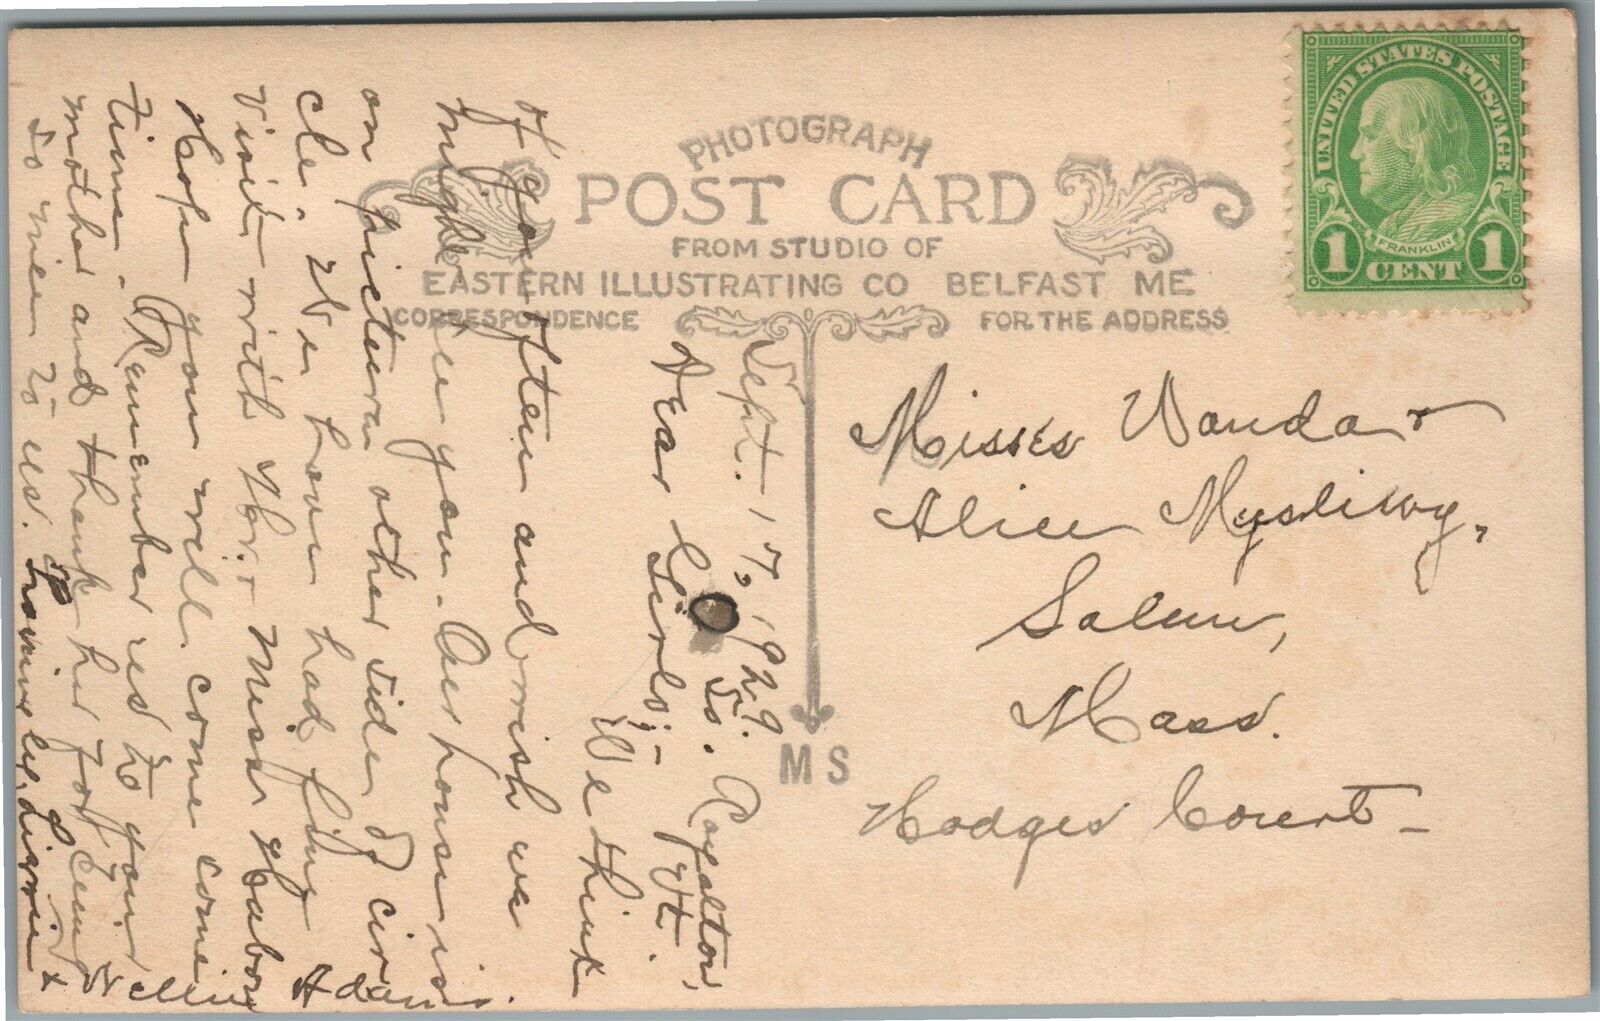 UNITED STATES POSTAGE
FRANKLIN
1 CENT 1
PHOTOGRAPH
POST CARD
FROM STUDIO OF
EASTERN ILLUSTRATING CO BELFAST ME
CORRESPONDENCE
FOR THE ADDRESS
MS
So. Royalton, Vt.
Sept. 17, 1929.
Dear Girls:- We think
of you often and wish we
might see you. Our house is
on picture on other side of cir
cle. We have had fine
visit with Mr. + Miss
Hope you will come some
time. Remember us to your
mother and thank her for being
so nice to us.
Lovingly, Lizzie +
Nellie Adams.
Misses Wanda +
Alice Mysliwy,
Salem,
Mass.
Hodges Court-